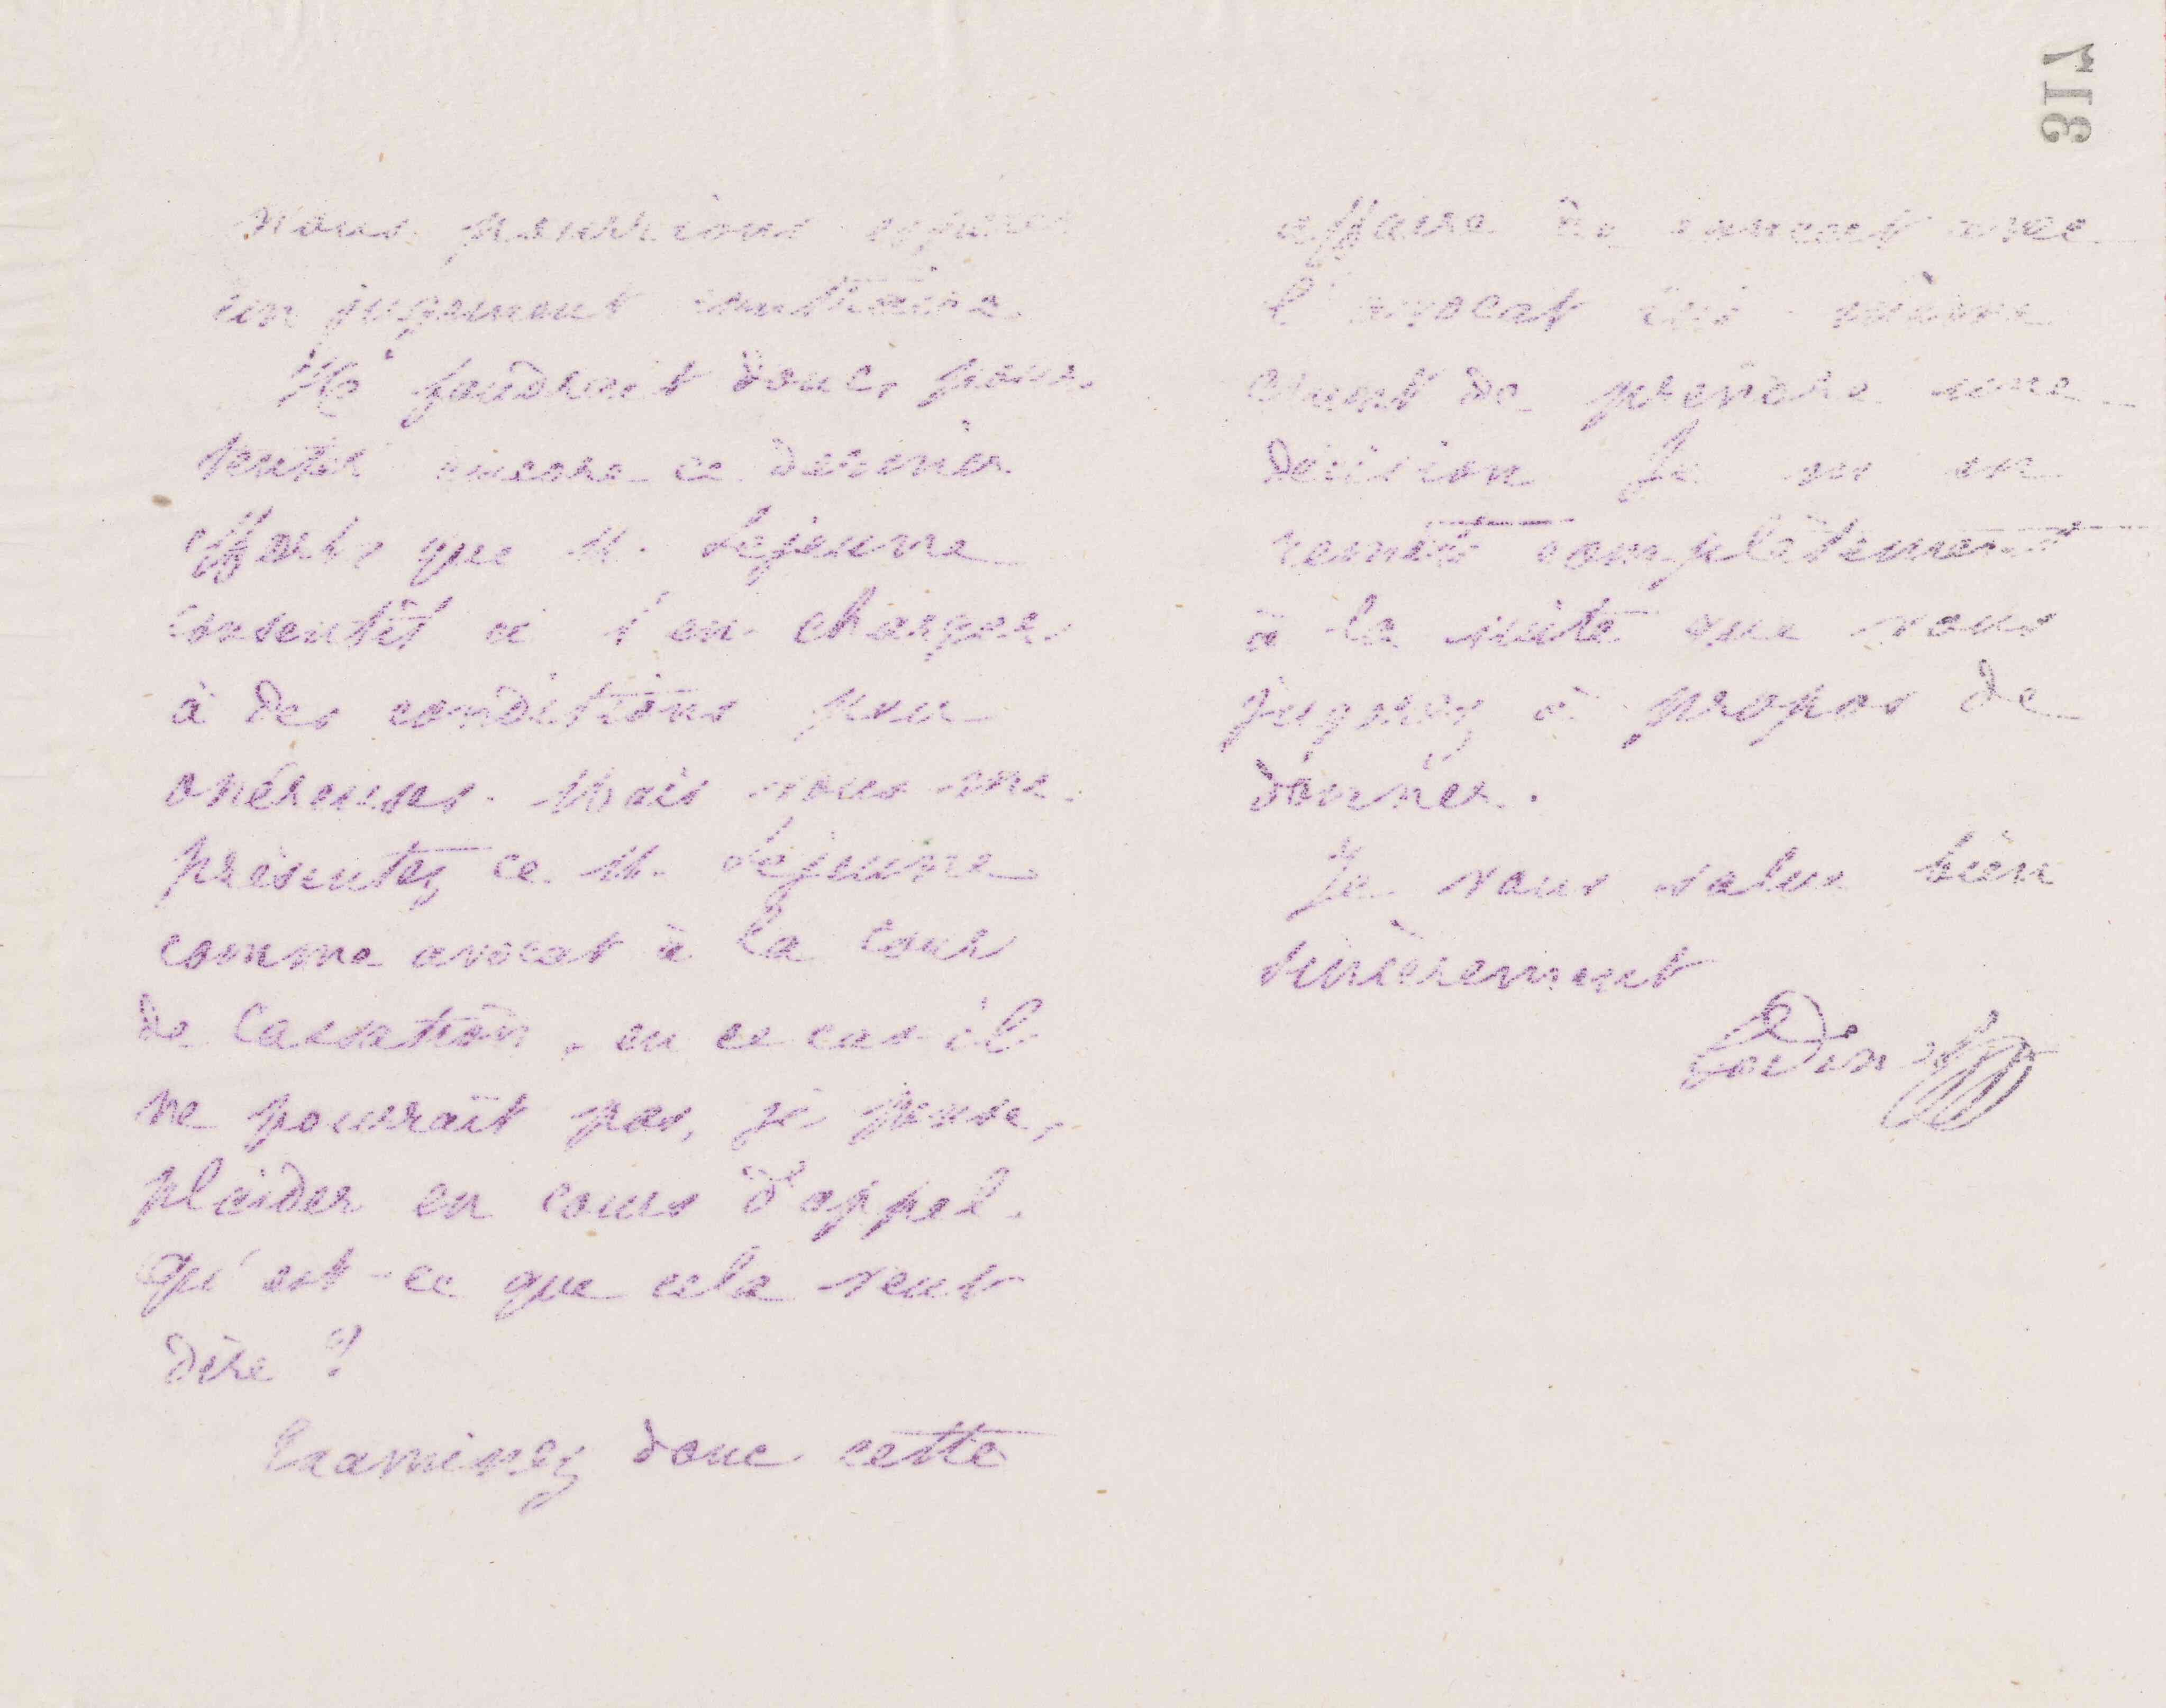 nous pourrions espérer
un jugement contraire.
Il faudrait donc, pour
tenter encore ce dernier
effort, que M. Lejeune
consentît à s'en charger
à des conditions peu
onéreuses. Mais vous me
présentez ce M. Lejeune
comme avocat à la cour
de Cassation, en ce cas il
ne pourrait pas, je pense,
plaider en cours d'appel.
Qu'est-ce que cela veut
dire ?
Examinez donc cette
317
affaire de concert avec
l'avocat lui-même
avant de prendre une
décision Je m'en
remets complètement
à la suite que vous
jugerez à propos de
donner.
Je vous salue bien
sincèrement
Godin